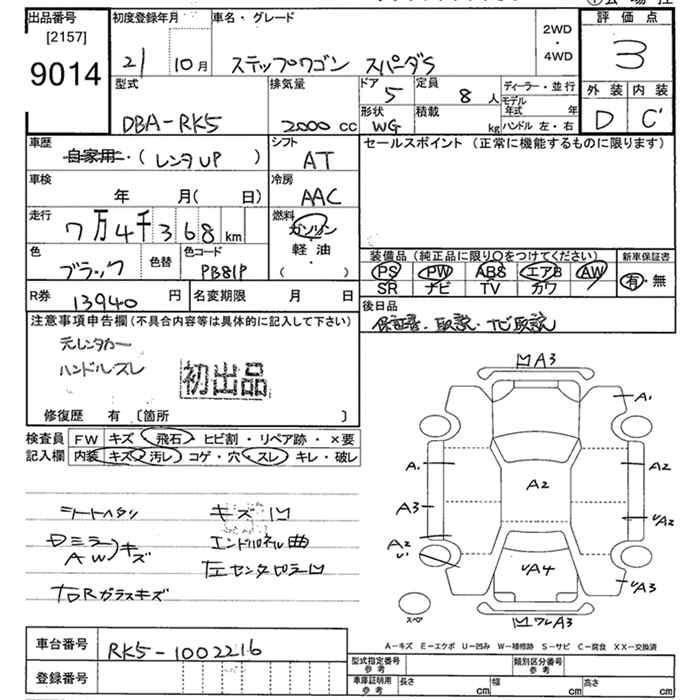 出品番号 初度登録年月 車名・グレード 2WD・4WD 評価点
[2157]
9014 21 10月 ステップワゴン スパーダS 3
型式 排気量 ドア 定員 ディーラー・並行 外装 内装
DBA-RK5 2000 cc 5 8人 モデル年式 年 D C'
形状 積載
WG kg ハンドル 左・右
車歴 自家用・(レンタUP) シフト AT セールスポイント(正常に機能するものに限ります)
車検 年 月(日) 冷房 AAC
走行 7万4千368km 燃料 ガソリン・軽油・( )
色 ブラック 色替 色コード PB81P
装備品(純正品に限り○をつけてください) 新車保証書
PS PW ABS エアB AW 有・無
SR ナビ TV カワ
R券 13940円 名変期限 月 日 後日品
保証書、取説、ナビ取説
注意事項申告欄(不具合内容等は具体的に記入して下さい)
元レンタカー
ハンドルスレ
初出品
修復歴 有 [箇所 ]
検査員記入欄 FW キズ 飛石・ヒビ割・リペア跡・×要
内装 キズ・汚レ・コゲ・穴・スレ・キレ・破レ
シートヘタリ キズ凹
Dミラー AW キズ エンドパネル曲
左センタピラー凹
右Rガラスキズ
凹A3
A1
A1 A2 A2
A3 UA2
A2 U1 UA4 UA3
スペア 凹ワレA3
車台番号 RK5-1002216
登録番号
A-キズ E-エクボ U-凹み W-補修跡 S-サビ C-腐食 XX-交換済
型式指定番号 参考 類別区分番号 参考
車庫証明用 参考 長さ cm 幅 cm 高さ cm